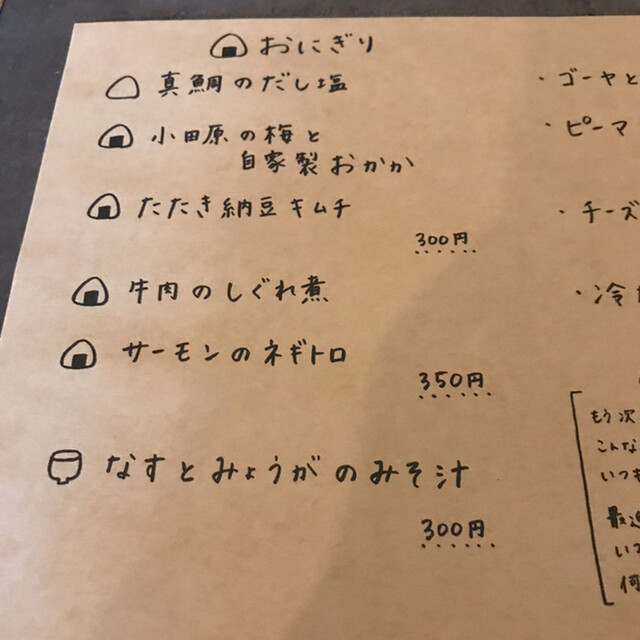 おにぎり
真鯛のだし塩
小田原の梅と
自家製おかか
たたき納豆キムチ
300円
牛肉のしぐれ煮
サーモンのネギトロ
350円
なすとみょうがのみそ汁
300円
・ゴーヤと
・ピーマ
・チーズ
・冷
もう次
こんな
いつも
最近
いつ
何